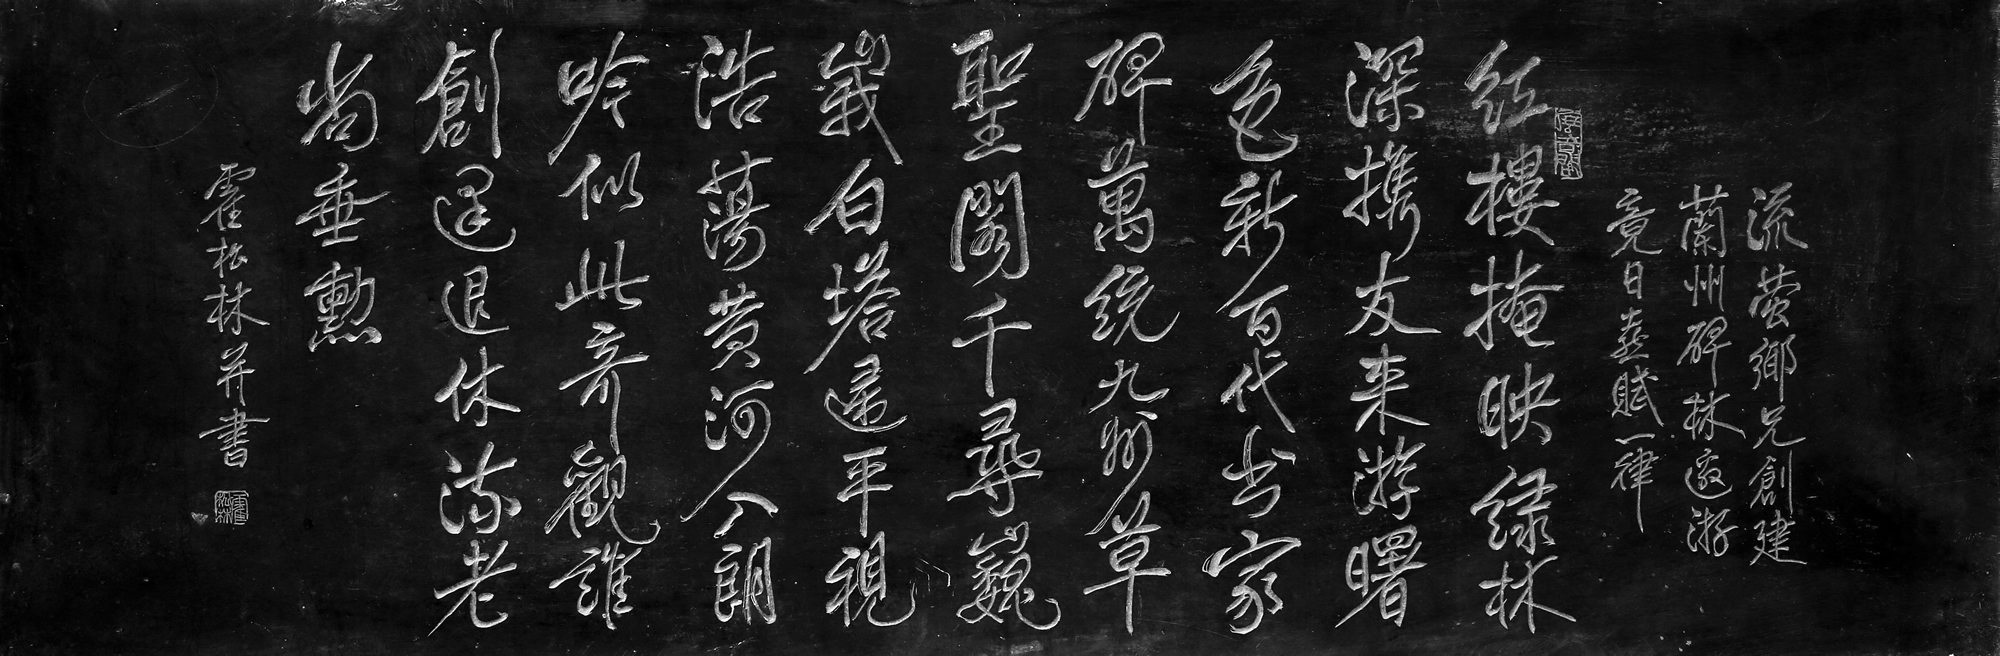 流萤鄉兄創建
蘭州碑林邀游
竟日喜賦一律
紅樓掩映緑林
深携友来游曙
色新百代书家
碑萬統九州草
聖閣千尋巍
峩白塔遥平視
浩蕩黄河入朗
吟似此奇觀誰
創建退休流老
尚垂勲
霍松林并書
霍松林